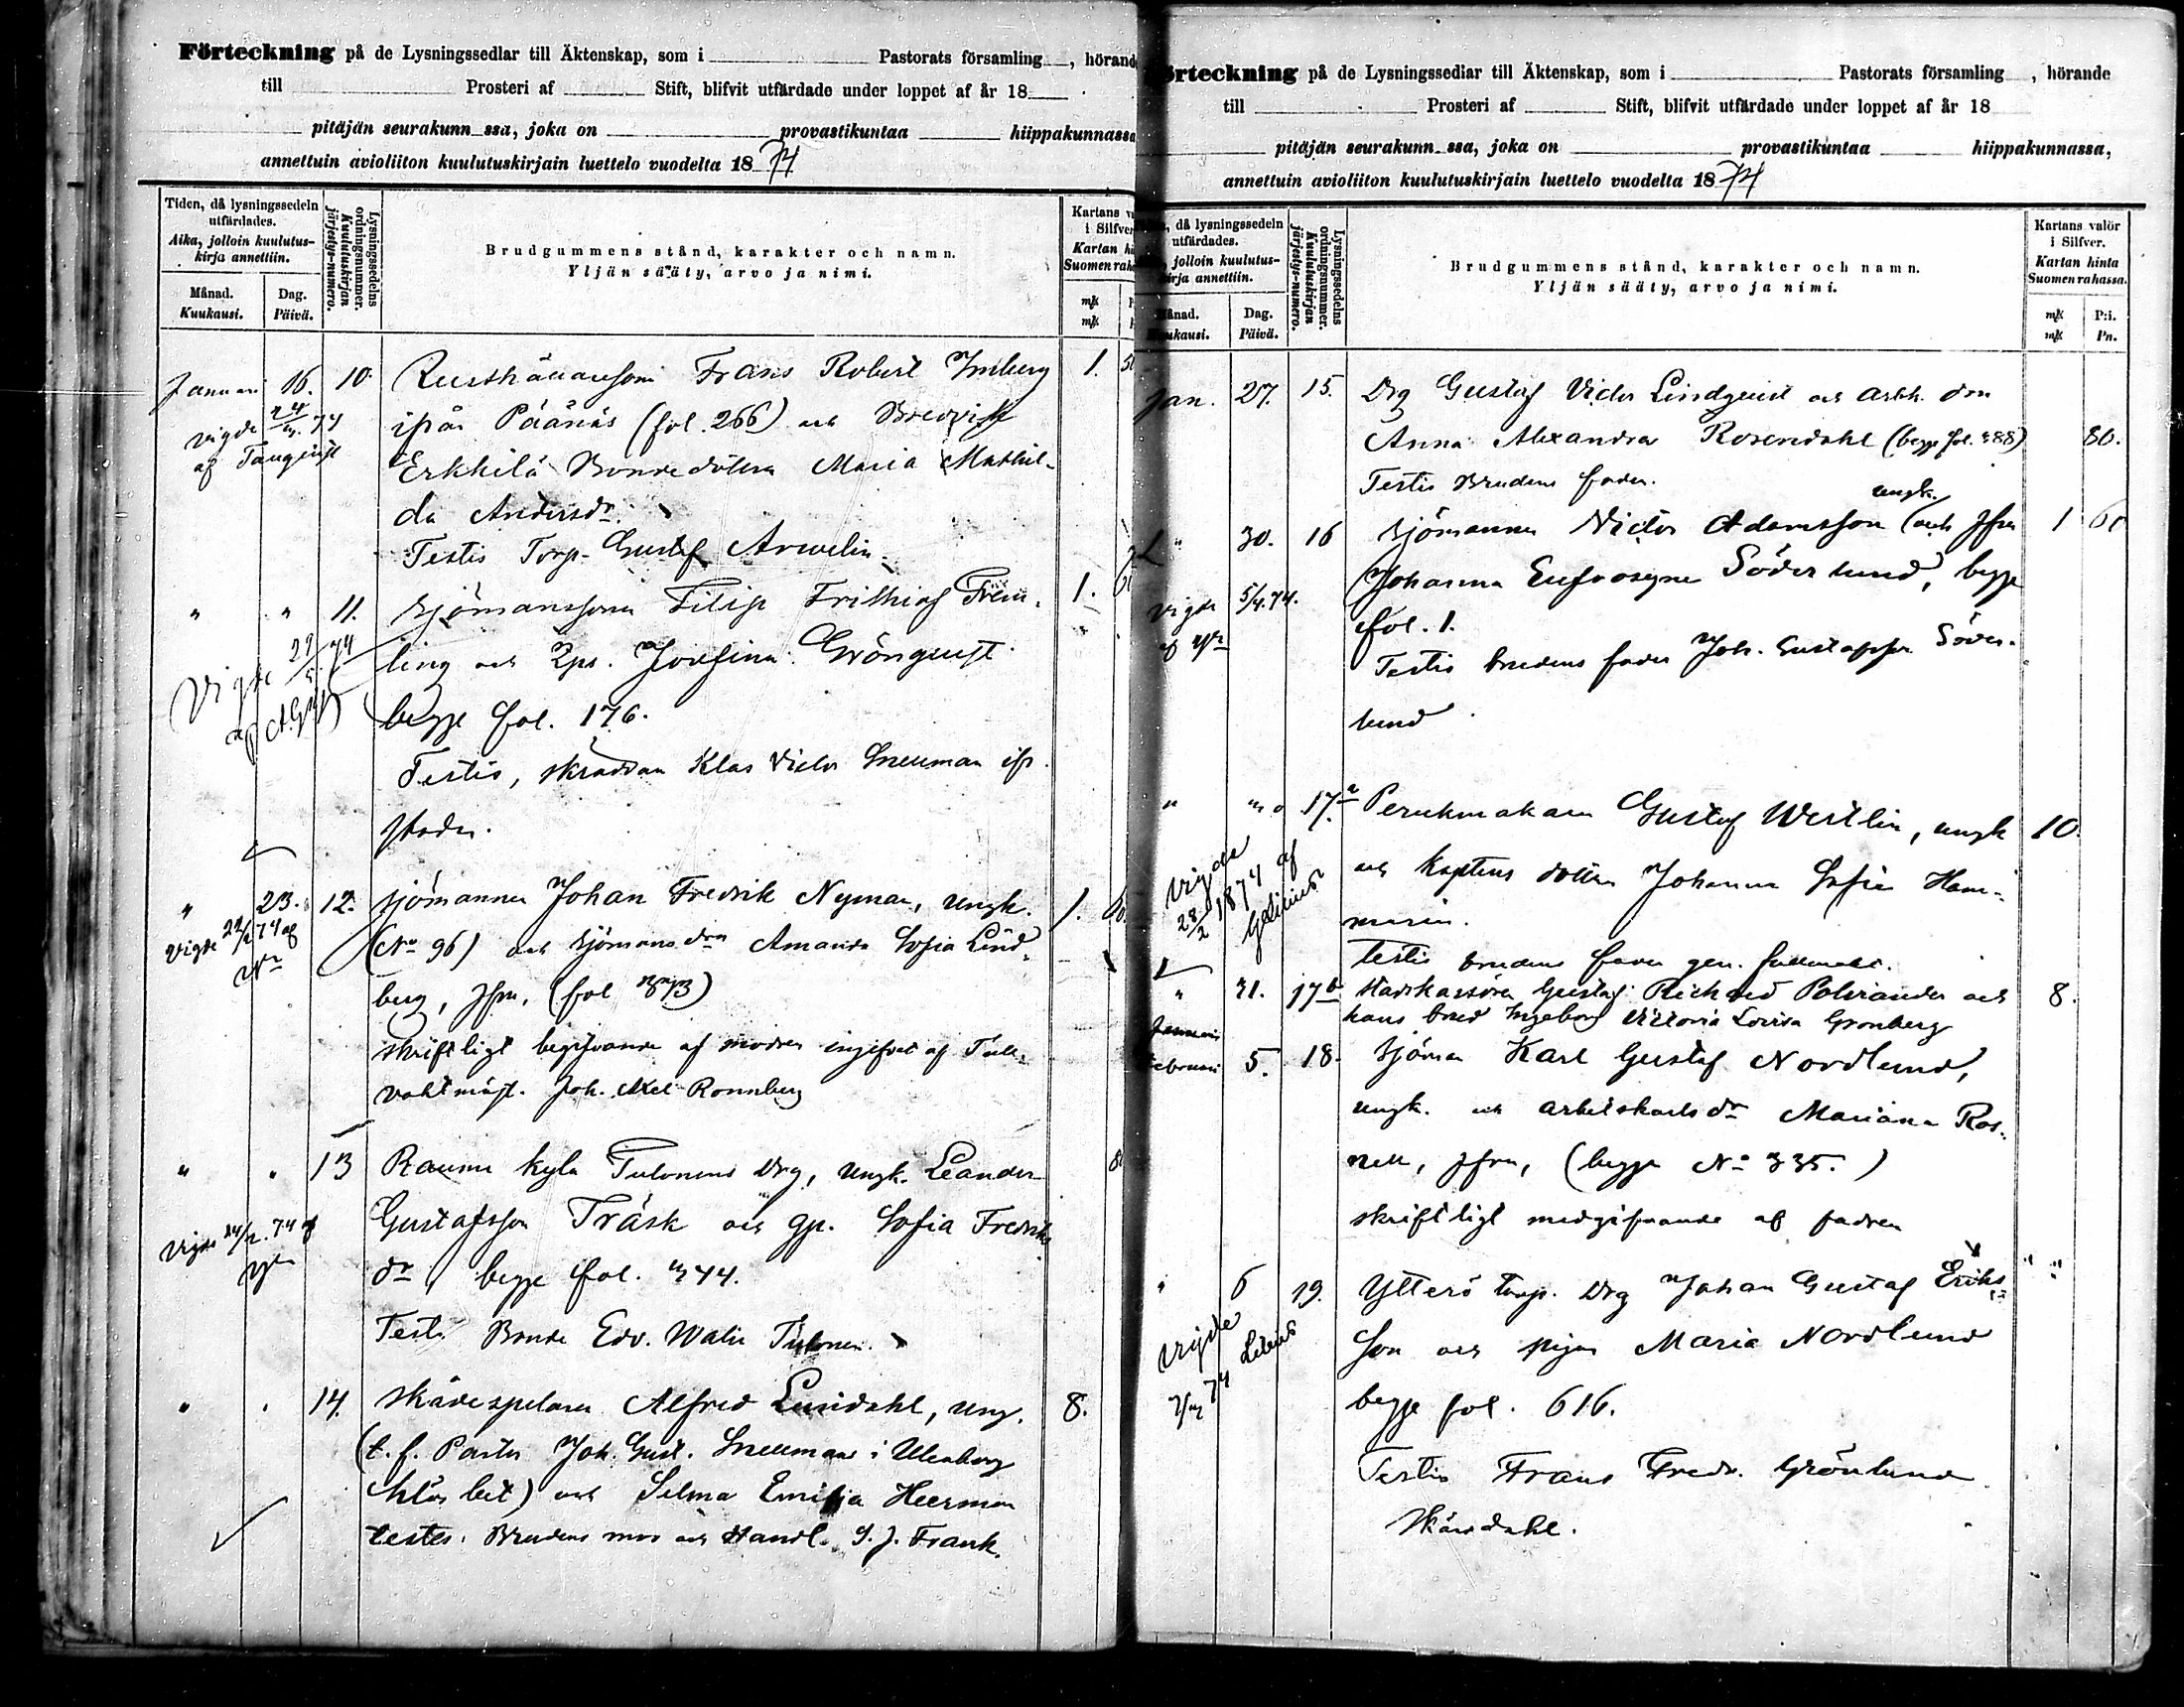 Förteckning på de Lysningssedlar till Äktenskap, som i Pastorats församling , hörand
till Prosteri af Stift, blifvit utfärdade under loppet af år 18
pitäjän seurakunn ssa, joka on provastikuntaa hiippakunnassa
annettuin avioliiton kuulutuskirjain luettelo vuodelta 1874
Tiden, då lysningssedeln utfärdades.
Aika, jolloin kuulutus-kirja annettiin.
Månad. Kuukausi.
Dag. Päivä.
Lysningssedelns ordningsnummer.
Kuulutuskirjan järjestys-numero.
Brudgummens stånd, karakter och namn.
Yljän sääty, arvo ja nimi.
Kartans v
i Silfver
Kartan hi
Suomen raha
m/k
m/k
Januari 16. 10. Frans Robert Imberg 1. 50
ifrån Päänäs (fol. 266) och Bredvik
Erkkilä Bondedottern Maria Mathil-
da Andersdr.
Testis Torp. Gustaf Arwelin
vigde 74
af Tanguist
" " 11. Sjömanssonen Filip Frithiof Frim- 1. 60
ling och Josefina Grönquist
begge fol. 176.
Testis, skräddaren Klas Victor Snellman ifr.
staden.
Vigde 74
" 23. 12. sjömannen Johan Fredrik Nyman, ungk. 1. 60
(No 96) och sjömans drn Amanda Sofia Lind-
berg, jfrn, (fol 373)
skriftligt begifvande af modren ingifvet af Tull-
vaktmäst. Joh. Axel Rönnberg
Vigde 22/2 74 af
" " 13 Raumo kyla Tulonens Drg, ungk. Leander 80
Gustafsson Träsk och gp. Sofia Fredriks
dr, begge fol. 344.
Testis Bonde Edv. Walis Tulonen.
Vigde 24/2. 74 af
" " 14. skådespelaren Alfred Lundahl, ung. 8.
(t. f. Pastor Joh. Gust. Snellmans i Uleåborg
bet) och Selma Emilia Heerman
testes. Brudens mor och Handl. G. J. Frank.
örteckning på de Lysningssedlar till Äktenskap, som i Pastorats församling , hörande
till Prosteri af Stift, blifvit utfärdade under loppet af år 18
pitäjän seurakunn ssa, joka on provastikuntaa hiippakunnassa,
annettuin avioliiton kuulutuskirjain luettelo vuodelta 1874
, då lysningssedeln utfärdades.
jolloin kuulutus-
irja annettiin.
ånad.
ukausi.
Dag. Päivä.
Lysningssedelns ordningsnummer.
Kuulutuskirjan järjestys-numero.
Brudgummens stånd, karakter och namn.
Yljän sääty, arvo ja nimi.
Kartans valör
i Silfver.
Kartan hinta
Suomen rahassa.
m/k P:i.
m/k Pn.
Jan. 27. 15. Drg Gustaf Victor Lindquist och arbk. drn
Anna Alexandra Rosendahl (begge fol. 388) 80.
Testis Brudens fader.
ungk.
" 30. 16 sjömannen Victor Adamsson och Jfrn 1 60
Johanna Eufrosyne Söderlund, begge
fol. 1.
Testis brudens fader Joh. Gustafsson Söder-
lund
vigde 5/4.74.
" " 17.a Perukmakaren Gustaf Westlin, ungk 10.
och kaptens dottern Johanna Sofia Ham-
marin.
testis brudens fader gen. fullmakt.
Vigde 28/2 1874 af
" 31. 17b Stadskassören Gustaf Richard Polviander och 8.
hans brud Ingeborg Victoria Lovisa Grönberg
Januari
Februari 5. 18. Sjöman Karl Gustaf Nordlund,
ungk. och arbetskarls dr Mariana Ros-
nell, jfrn, (begge No 335.)
skriftligt medgifvande af fadren
" 6 19. Ytterö torp. Drg Johan Gustaf Eriks- " "
son och pigan Maria Nordlund
begge fol. 616.
Testis Frans Fredr. Grönlund
Skårdahl.
Vigde 74